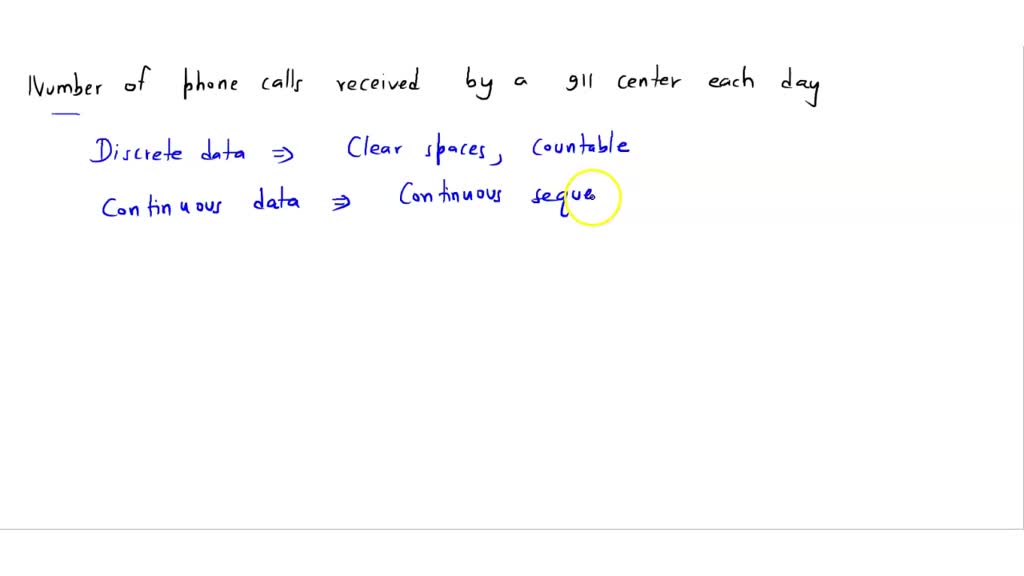 Number of phone calls received by a 911 center each day
Discrete data ⇒ Clear spaces, countable
Continuous data ⇒ Continuous seque